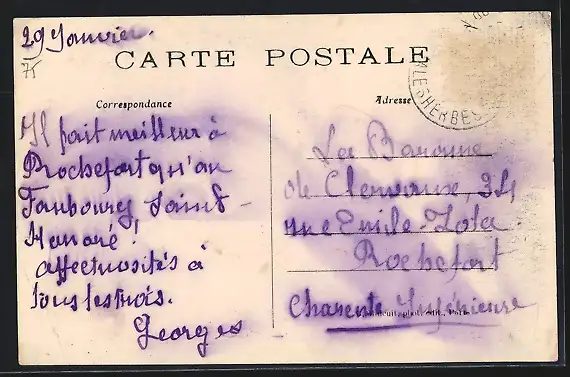 29 Janvier.
75
CARTE POSTALE
Correspondance
Adresse
MALESHERBES
Il fait meilleur à
Rochefort qu'au
Faubourg Saint-
Honoré !
affectuosités à
tous les trois.
Georges
La Baronne
de Clervaux, 34
rue Emile Zola
Rochefort
Charente Inférieure
phot. édit., Paris